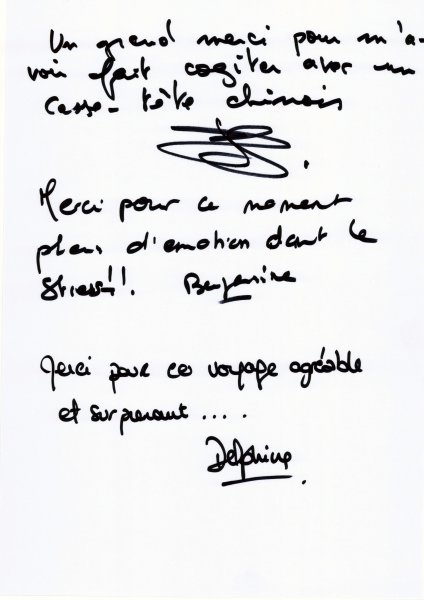 Un grand merci pour m'a-
voir fait cogiter avec un
casse-tête chinois
Merci pour ce moment
plein d'émotion dont le
stress!!. Benjamine
Merci pour ce voyage agréable
et surprenant ....
Delphine.